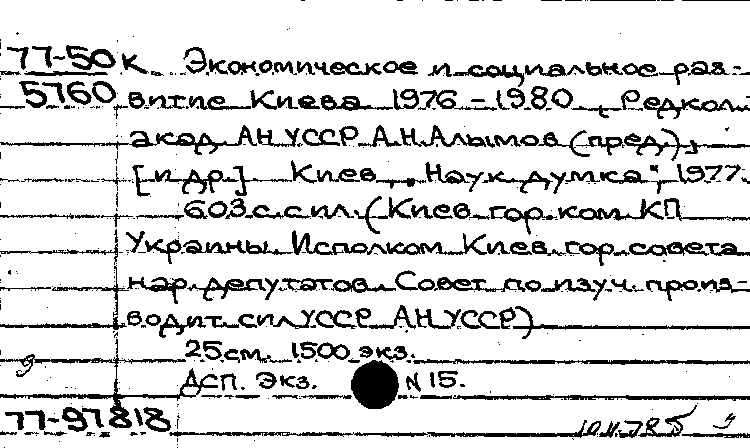 77-50 к Экономическое и социальное раз-
5760 витие Киева 1976-1980. Редкол.:
акад. АН УССР А.Н.Алымов (пред.),
[и др.] Киев, "Наук. думка", 1977.
603 с. с ил. (Киев. гор. ком. КП
Украины. Исполком Киев. гор. совета
нар. депутатов. Совет по изуч. произ-
водит. сил УССР АН УССР)
25 см. 1500 экз.
ДСП. Экз. N 15.
77-97818